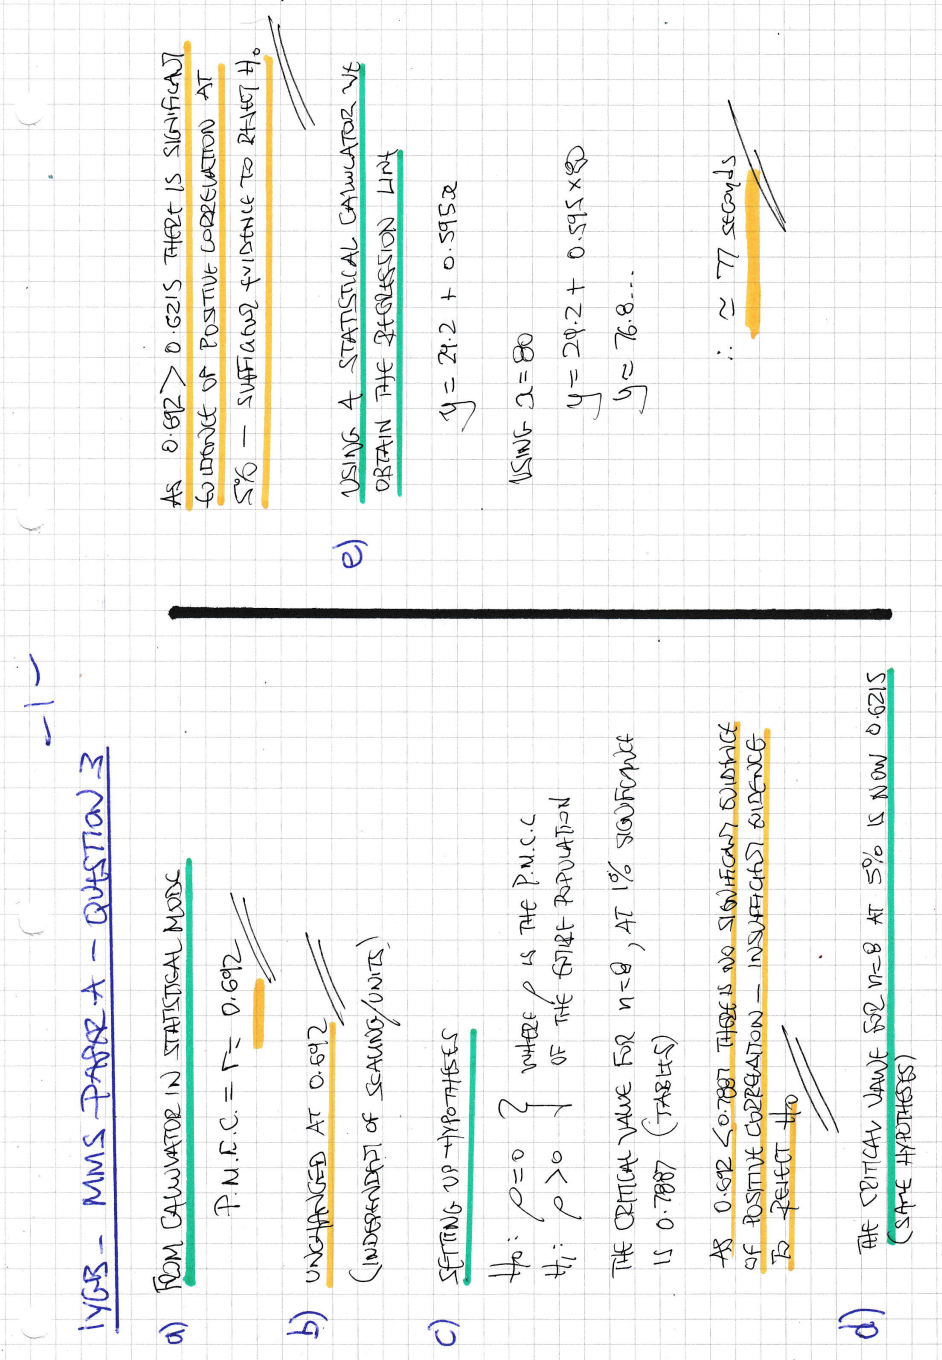 -1-
IYGB - MMS PAPER A - QUESTION 3
a) FROM CALCULATOR IN STATISTICAL MODE
P.M.C.C. = r = 0.692
b) UNCHANGED AT 0.692
(INDEPENDENT OF SCALING/UNITS)
c) SETTING UP HYPOTHESES
H₀: ρ=0 } WHERE ρ IS THE P.M.C.C
H₁: ρ>0 OF THE ENTIRE POPULATION
THE CRITICAL VALUE FOR n=8, AT 1% SIGNIFICANCE
IS 0.7887 (TABLES)
AS 0.692 < 0.7887 THERE IS NO SIGNIFICANT EVIDENCE
OF POSITIVE CORRELATION - INSUFFICIENT EVIDENCE
TO REJECT H₀
d) THE CRITICAL VALUE FOR n=8 AT 5% IS NOW 0.6215
(SAME HYPOTHESES)
AS 0.692 > 0.6215 THERE IS SIGNIFICANT
EVIDENCE OF POSITIVE CORRELATION AT
5% - SUFFICIENT EVIDENCE TO REJECT H₀
e) USING A STATISTICAL CALCULATOR WE
OBTAIN THE REGRESSION LINE
y = 29.2 + 0.595x
USING x = 80
y = 29.2 + 0.595 × 80
y = 76.8...
∴ ≃ 77 seconds